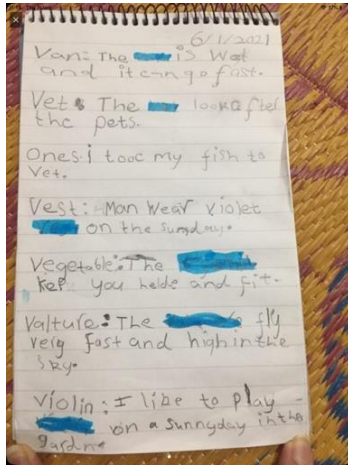 6/1/2021
Van: The is Wet
and it can go fast.
Vet: The look after
the pets.
Ones i tooc my fish to
Vet.
Vest: Man Wear violet
on the sunnyday.
Vegetable: The
kep you helde and fit.
Valture: The fly
very fast and high in the
sky.
violin: I like to play
on a sunnyday in the
gardne